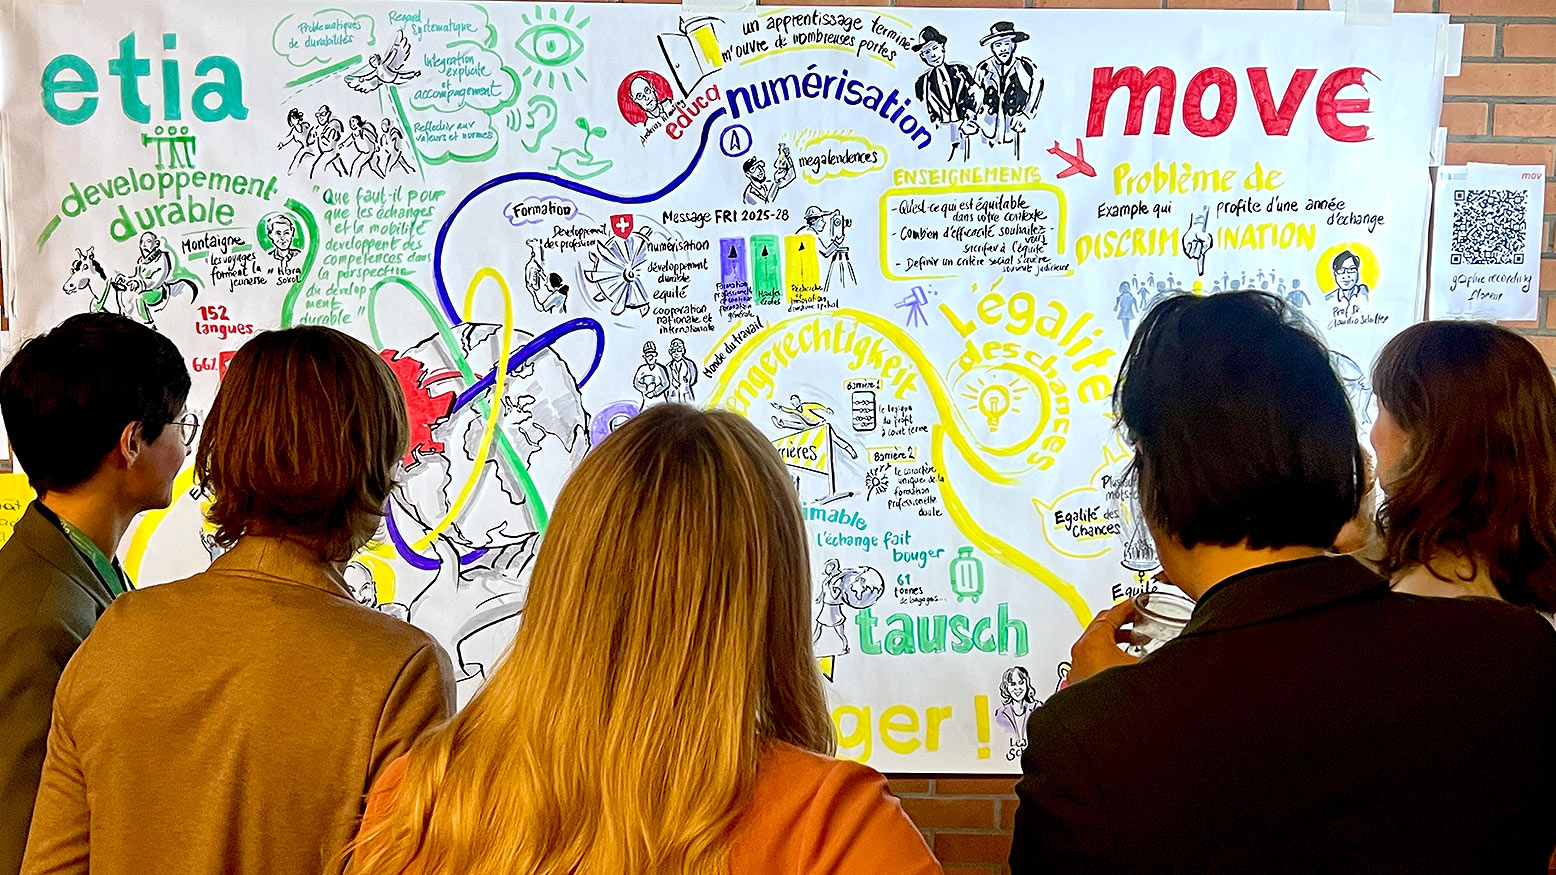 etia
Problématiques
de durabilités
Regard
Systématique
Intégration
explicite
et
accompagnement
Réfléchir aux
valeurs et normes
développement
durable
Montaigne
"les voyages
forment la
jeunesse"
Nora
Sokol
"Que faut-il pour
que les échanges
et la mobilité
developpent des
compétences dans
la perspective
du develop-
ment
durable"
152
langues
66%
un apprentissage terminé
m'ouvre de nombreuses portes
educa
numérisation
megatendences
Formation
Développement
des professions
Message FRI 2025-28
numérisation
développement
durable
equité
cooperation
nationale et
internationale
Hautes
écoles
Recherche
et
innovation
Monde du travail
ngerechtigkeit
ENSEIGNEMENTS
- Qu'est-ce qui est équitable
dans votre contexte
- Combien d'efficacité souhaitez-
vous
sacrifier à l'équité
- Definir un critère social s'avère
souvent judicieux
move
Problème de
Example qui profite d'une année
d'échange
DISCRIMINATION
Prof. Dr.
Claudia Schuchart
L'égalité
des chances
Barrière 1
la logique
du profit
à court terme
Barrière 2
le caractère
unique de la
formation
professionelle
duale
rrières
imable
l'échange fait
bouger
61
tonnes
de bagages...
tausch
Egalité des
Chances
Equité
ger!
mov
graphic recording